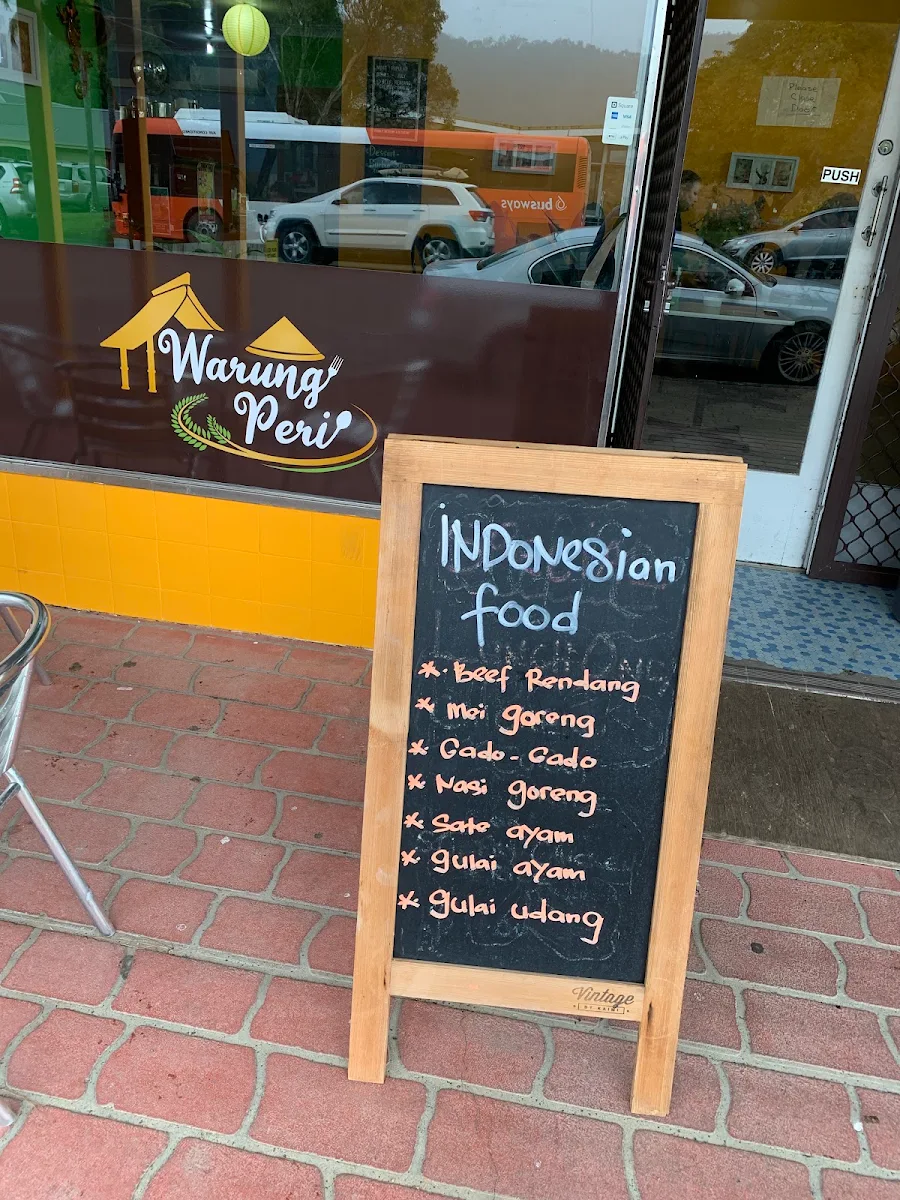 Square
Please
Close
Door
PUSH
busways
Warung
Peri
INDONesian
food
* Beef Rendang
* Mei goreng
* Gado-Gado
* Nasi goreng
* Sate ayam
* gulai ayam
* gulai udang
Vintage